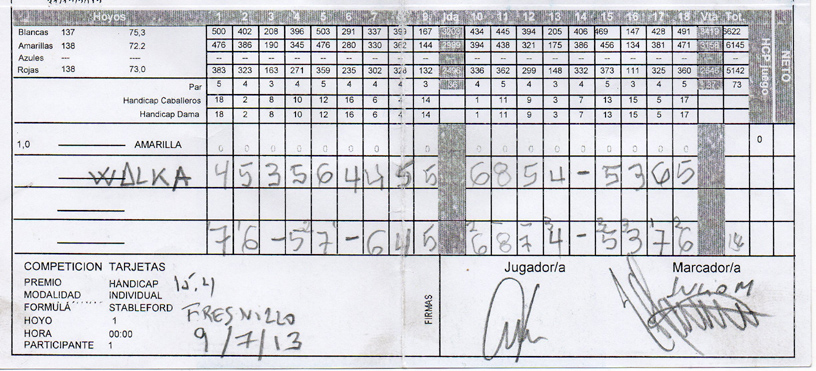 Hoyos 1 2 3 4 5 6 7 8 9 Ida 10 11 12 13 14 15 16 17 18 Vta Tot.
Blancas 137 75,3 500 402 208 396 503 291 337 399 167 434 445 394 205 406 469 147 428 491 6622
Amarillas 138 72.2 476 386 190 345 476 280 330 362 144 394 438 321 175 386 456 134 381 471 6145
Azules -- ---- -- -- -- -- -- -- -- -- -- -- -- -- -- -- -- -- -- -- --
Rojas 138 73,0 383 323 163 271 359 235 302 328 132 336 362 299 148 332 373 111 325 360 5142
Par 5 4 3 4 5 4 4 4 3 4 5 4 3 4 5 3 4 5 73
Handicap Caballeros 18 2 8 10 12 16 6 4 14 1 11 9 3 7 13 15 5 17
Handicap Dama 18 2 8 10 12 16 6 4 14 1 11 9 3 7 13 15 5 17
HCP Juego
NETO
1,0 AMARILLA 0 0 0 0 0 0 0 0 0 0 0 0 0 0 0 0 0 0 0
WALKA 4 5 3 5 6 4 4 5 5 6 8 5 4 - 5 3 6 5
7 6 - 5 7 - 6 4 5 6 8 7 4 - 5 3 7 6
COMPETICION TARJETAS
PREMIO HANDICAP 15.4
MODALIDAD INDIVIDUAL
FORMULA STABLEFORD
HOYO 1
HORA 00:00
PARTICIPANTE 1
FRESNILLO
9/7/13
FIRMAS
Jugador/a
Marcador/a
JULIO M